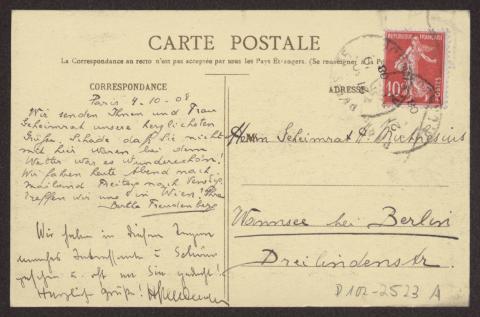 CARTE POSTALE
La Correspondance au recto n'est pas acceptée par tous les Pays Etrangers. (Se renseigner à la Poste)
CORRESPONDANCE
ADRESSE
RÉPUBLIQUE FRANÇAISE
10c
POSTES
Paris 9-10-08
Wir senden Ihnen und Frau
Geheimrat unsere herzlichsten
Grüße. Schade daß Sie nicht
mit hier waren, bei dem
Wetter war es wunderschön!
Wir fahren heute Abend nach
Mailand Freitag nach Venedig,
treffen wir uns in Wien? Ihre
Bertha Freudenberg
Wir haben in diesen Tagen
manches Interessante u. Schöne
gesehen u. oft an Sie gedacht!
Herzliche Grüße!
Herrn Geheimrat H. Muthesius
Wannsee bei Berlin
Dreilindenstr.
D 102-2523 A